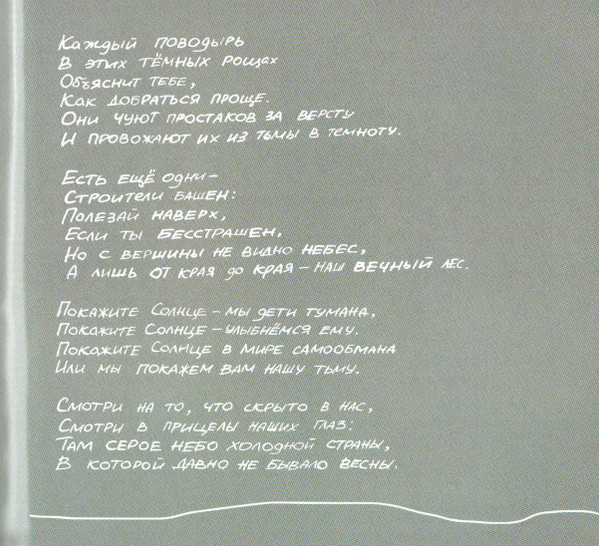 Каждый поводырь
В этих тёмных рощах
Объяснит тебе,
Как добраться проще.
Они чуют простаков за версту
И провожают их из тьмы в темноту.
Есть ещё одни –
Строители башен:
Полезай наверх,
Если ты бесстрашен,
Но с вершины не видно небес,
А лишь от края до края – наш вечный лес.
Покажите Солнце – мы дети тумана,
Покажите Солнце – улыбнёмся ему.
Покажите Солнце в мире самообмана
Или мы покажем вам нашу тьму.
Смотри на то, что скрыто в нас,
Смотри в прицелы наших глаз:
Там серое небо холодной страны,
В которой давно не бывало весны.